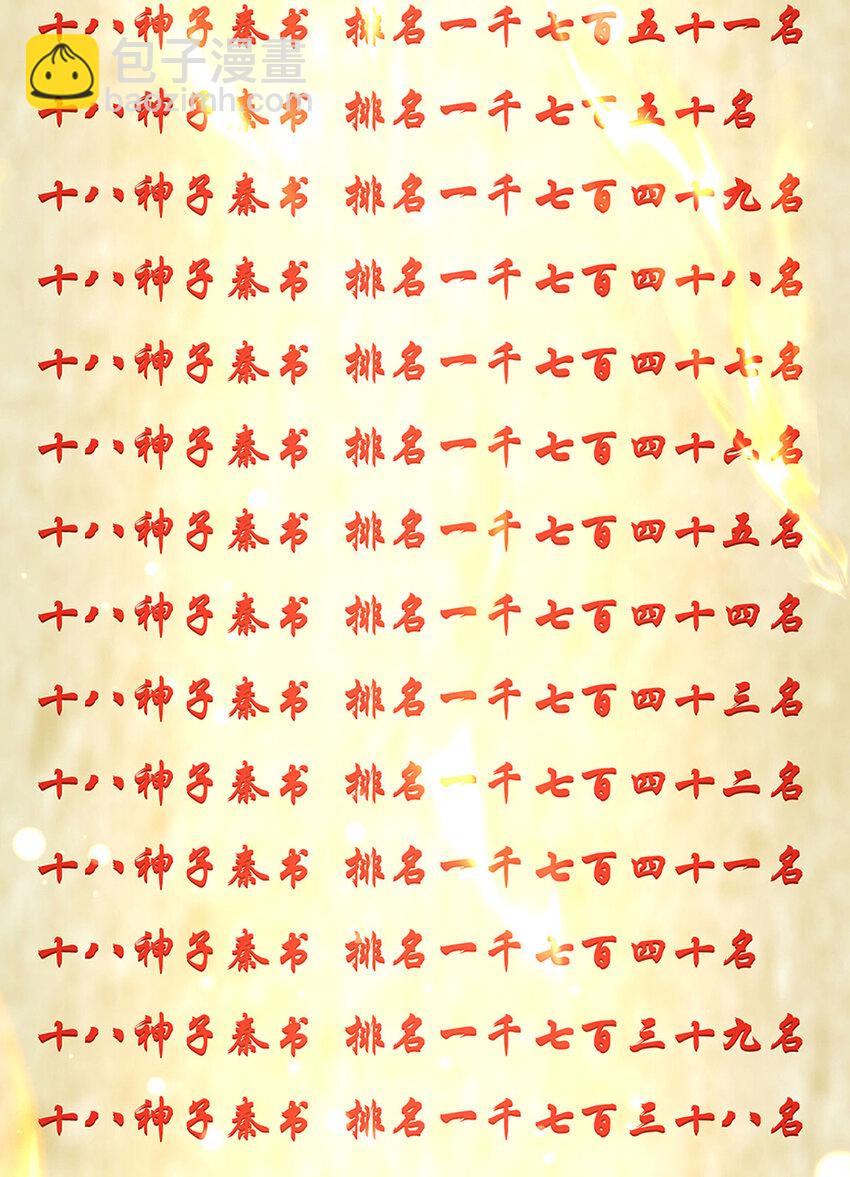 十八神子秦书 排名一千七百五十一名
包子漫畫
baozimh.com
十八神子秦书 排名一千七百五十名
十八神子秦书 排名一千七百四十九名
十八神子秦书 排名一千七百四十八名
十八神子秦书 排名一千七百四十七名
十八神子秦书 排名一千七百四十六名
十八神子秦书 排名一千七百四十五名
十八神子秦书 排名一千七百四十四名
十八神子秦书 排名一千七百四十三名
十八神子秦书 排名一千七百四十二名
十八神子秦书 排名一千七百四十一名
十八神子秦书 排名一千七百四十名
十八神子秦书 排名一千七百三十九名
十八神子秦书 排名一千七百三十八名